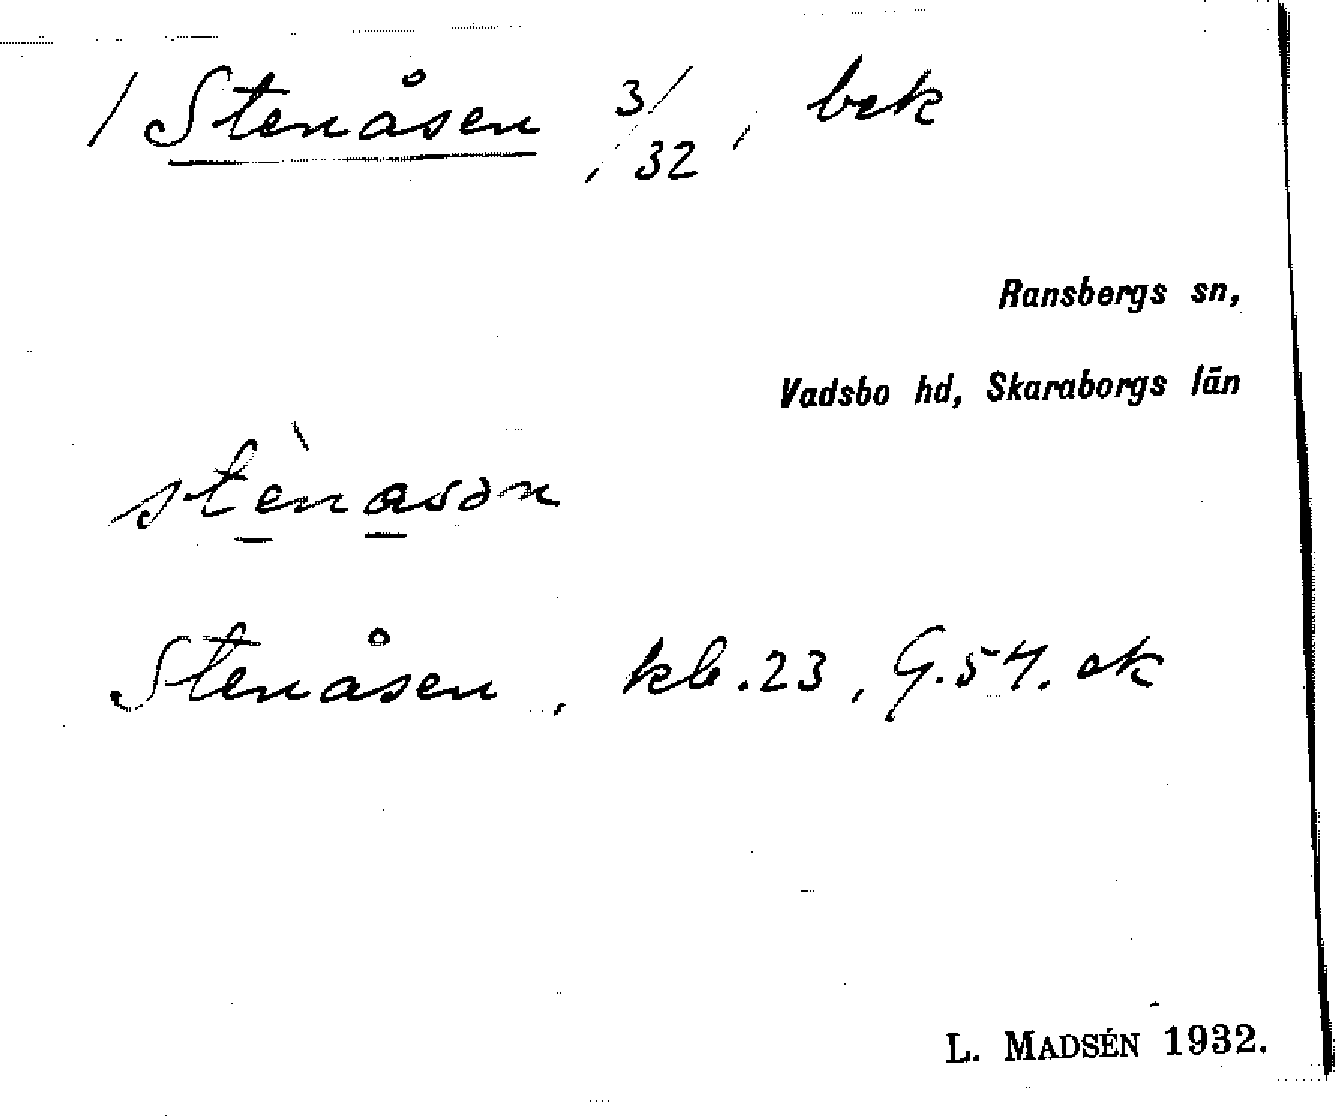 / Stenåsen 3/32, bek
Ransbergs sn,
Vadsbo hd, Skaraborgs län
stènasən
Stenåsen, kb. 23, G. 54. ek
L. MADSÉN 1932.